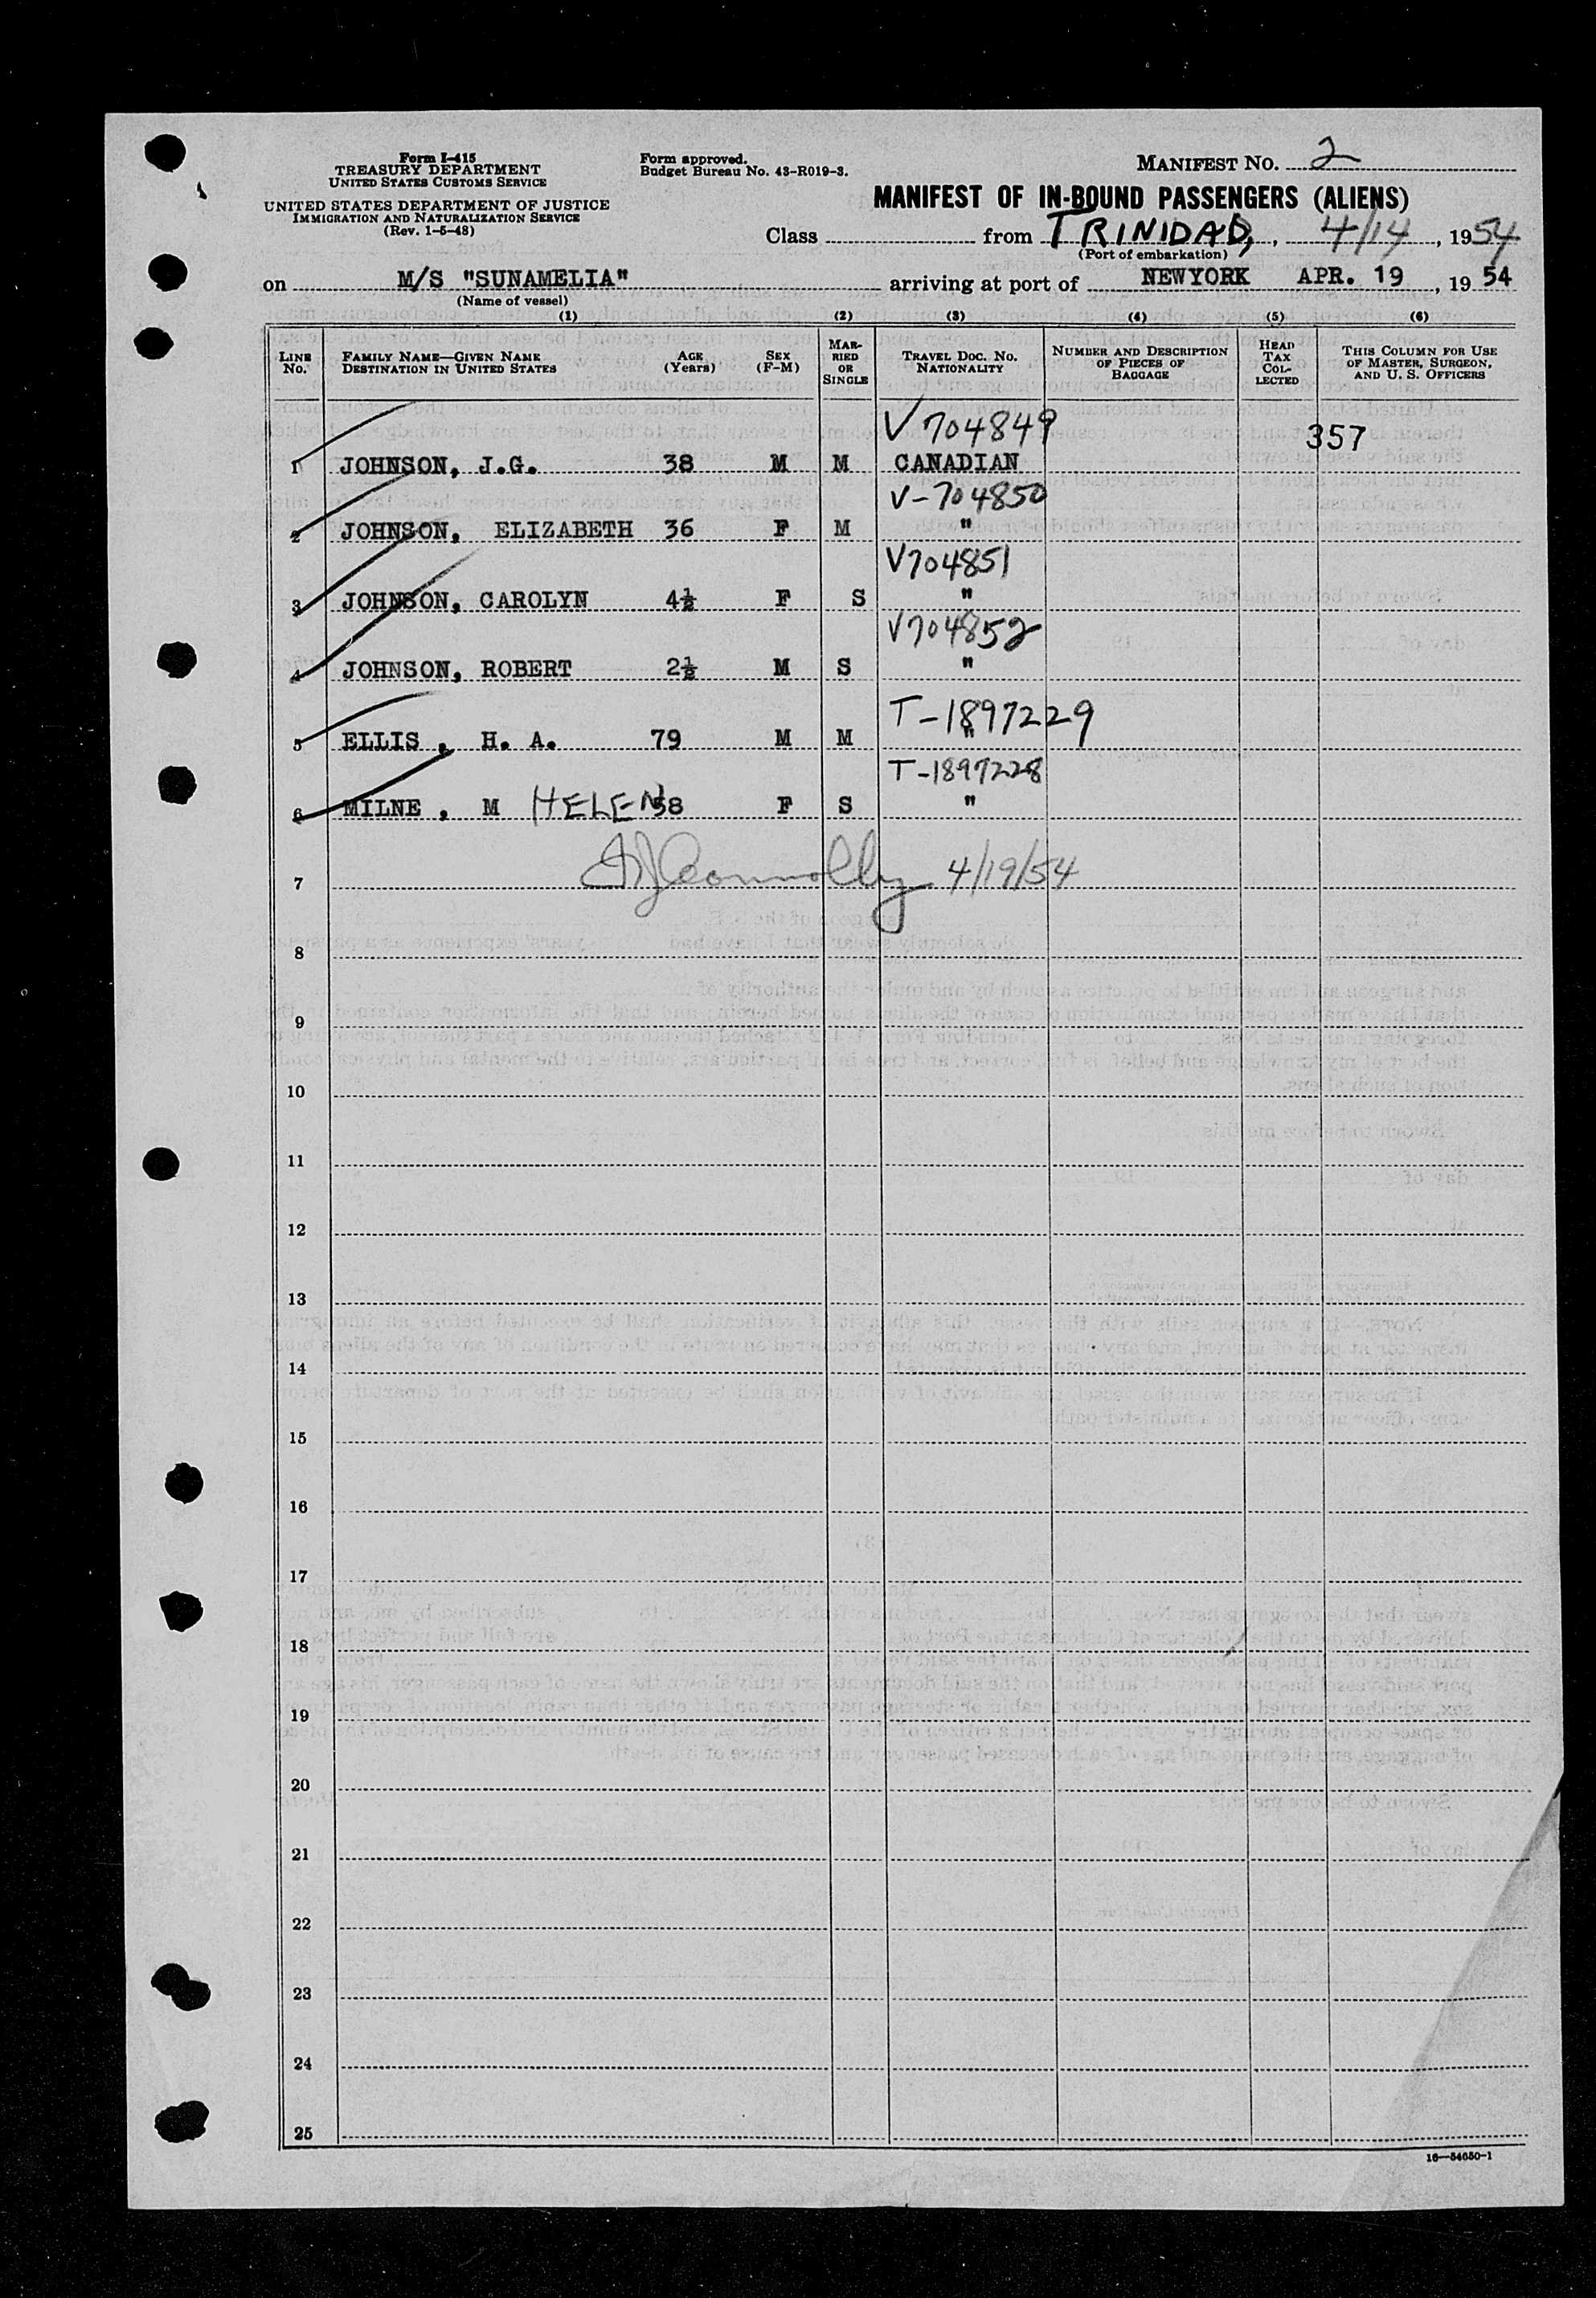 Form I-415
TREASURY DEPARTMENT
UNITED STATES CUSTOMS SERVICE
UNITED STATES DEPARTMENT OF JUSTICE
IMMIGRATION AND NATURALIZATION SERVICE
(Rev. 1-5-48)
Form approved.
Budget Bureau No. 43-R019-3.
MANIFEST NO. 2
MANIFEST OF IN-BOUND PASSENGERS (ALIENS)
Class from TRINIDAD, , 4/14, 1954
(Port of embarkation)
on M/S "SUNAMELIA" arriving at port of NEWYORK APR. 19, 1954
(Name of vessel)
(1) (2) (3) (4) (5) (6)
LINE No. FAMILY NAME—GIVEN NAME DESTINATION IN UNITED STATES AGE (Years) SEX (F-M) MARRIED OR SINGLE TRAVEL DOC. NO. NATIONALITY NUMBER AND DESCRIPTION OF PIECES OF BAGGAGE HEAD TAX COLLECTED THIS COLUMN FOR USE OF MASTER, SURGEON, AND U. S. OFFICERS
V 704849 357
1 JOHNSON, J.G. 38 M M CANADIAN
V-704850
2 JOHNSON, ELIZABETH 36 F M "
V704851
3 JOHNSON, CAROLYN 4½ F S "
V704852
4 JOHNSON, ROBERT 2½ M S "
T-1897229
5 ELLIS , H. A. 79 M M "
T-1897228
6 MILNE , M HELEN 38 F S "
7 Connolly 4/19/54
8
9
10
11
12
13
14
15
16
17
18
19
20
21
22
23
24
25
16—54650-1